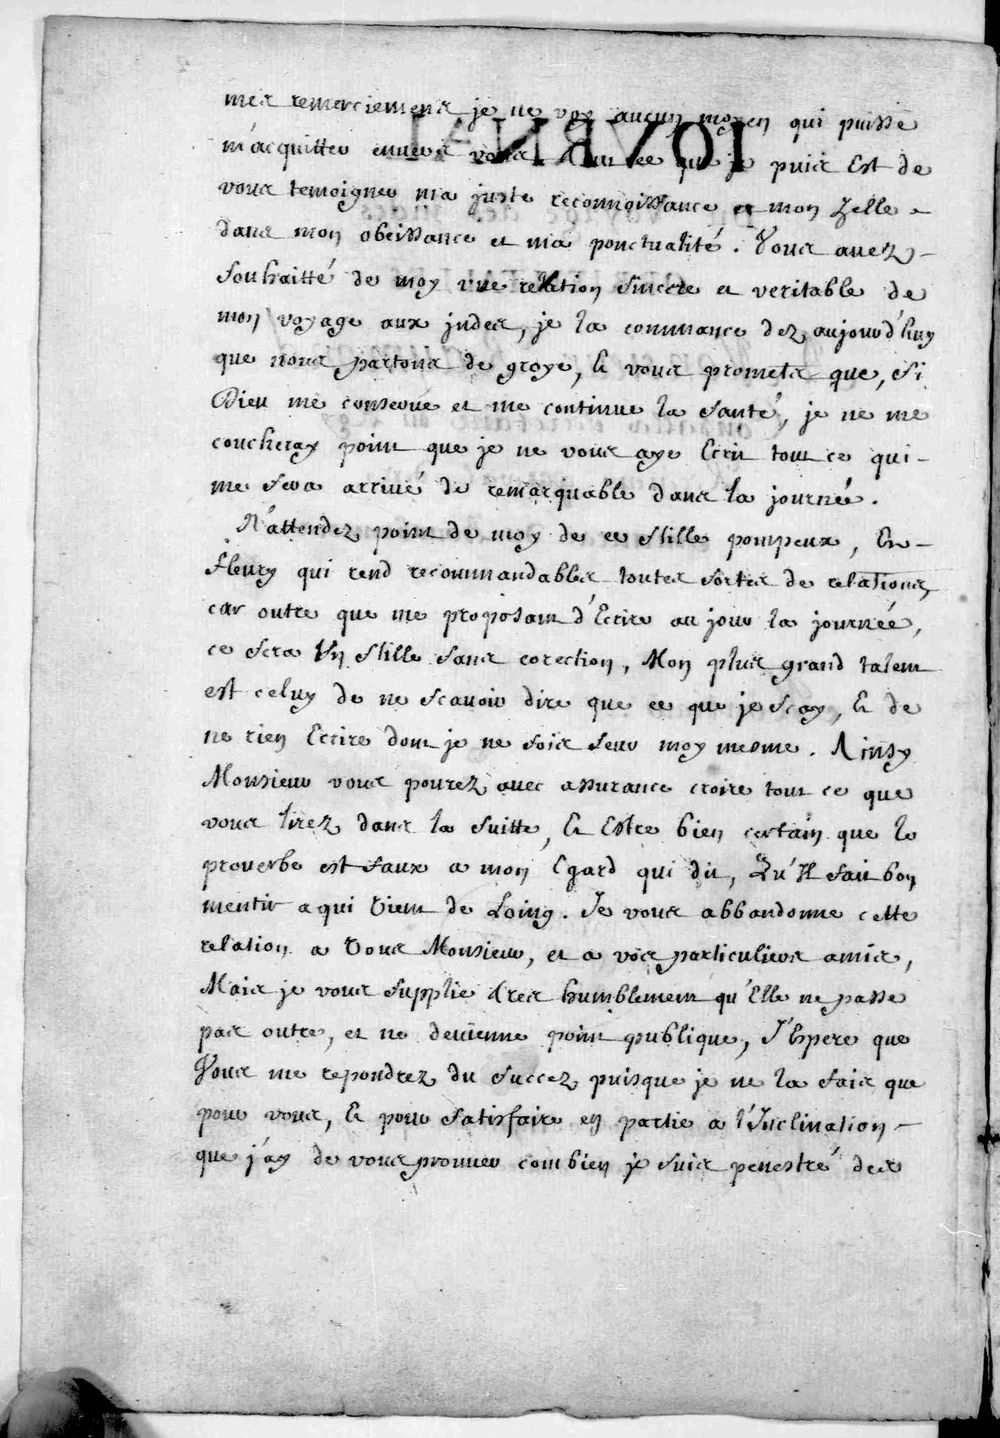 mes remerciemens je ne voy aucun moyen qui puisse
m'acquitter envers vous tout ce que je puis Est de
vous temoigner ma juste reconnoissance et mon zelle
dans mon obeissance et ma ponctualité. Vous avez
souhaitté de moy une relation sincere et veritable de
mon voyage aux indes, je la commance dez aujourd'huy
que nous partons de groye, & vous promets que, si
Dieu me conserve et me continue la santé, je ne me
coucheray point que je ne vous aye Ecrit tout ce qui
me sera arrivé de remarquable dans la journée.
N'attendez point de moy de ce stille pompeux, En
fleury qui rend recommandables toutes sortes de relations,
car outre que me proposant d'Ecrire au jour la journéé,
ce sera Un stille sans corection, Mon plus grand talent
est celuy de ne scavoir dire que ce que je scay, & de
ne rien Ecrire dont je ne sois seur moy mesme. Ainsy
Monsieur vous pourez avec assurance croire tout ce que
vous lirez dans la suitte, & Estre bien certain que le
proverbe est faux a mon Egard qui dit, Qu'Il fait bon
mentir a qui Vient de Loing. Je vous abbandonne cette
relation a Vous Monsieur, et a vos particuliers amis,
Mais je vous supplie tres humblement qu'Elle ne passe
pas outre, et ne devienne point publique, J'Espere que
Vous me repondrez du succez puisque je ne la fais que
pour vous, & pour satisfaire en partie a l'Inclination
que j'ay de vous prouver combien je suis penestré des
IOVRNAL